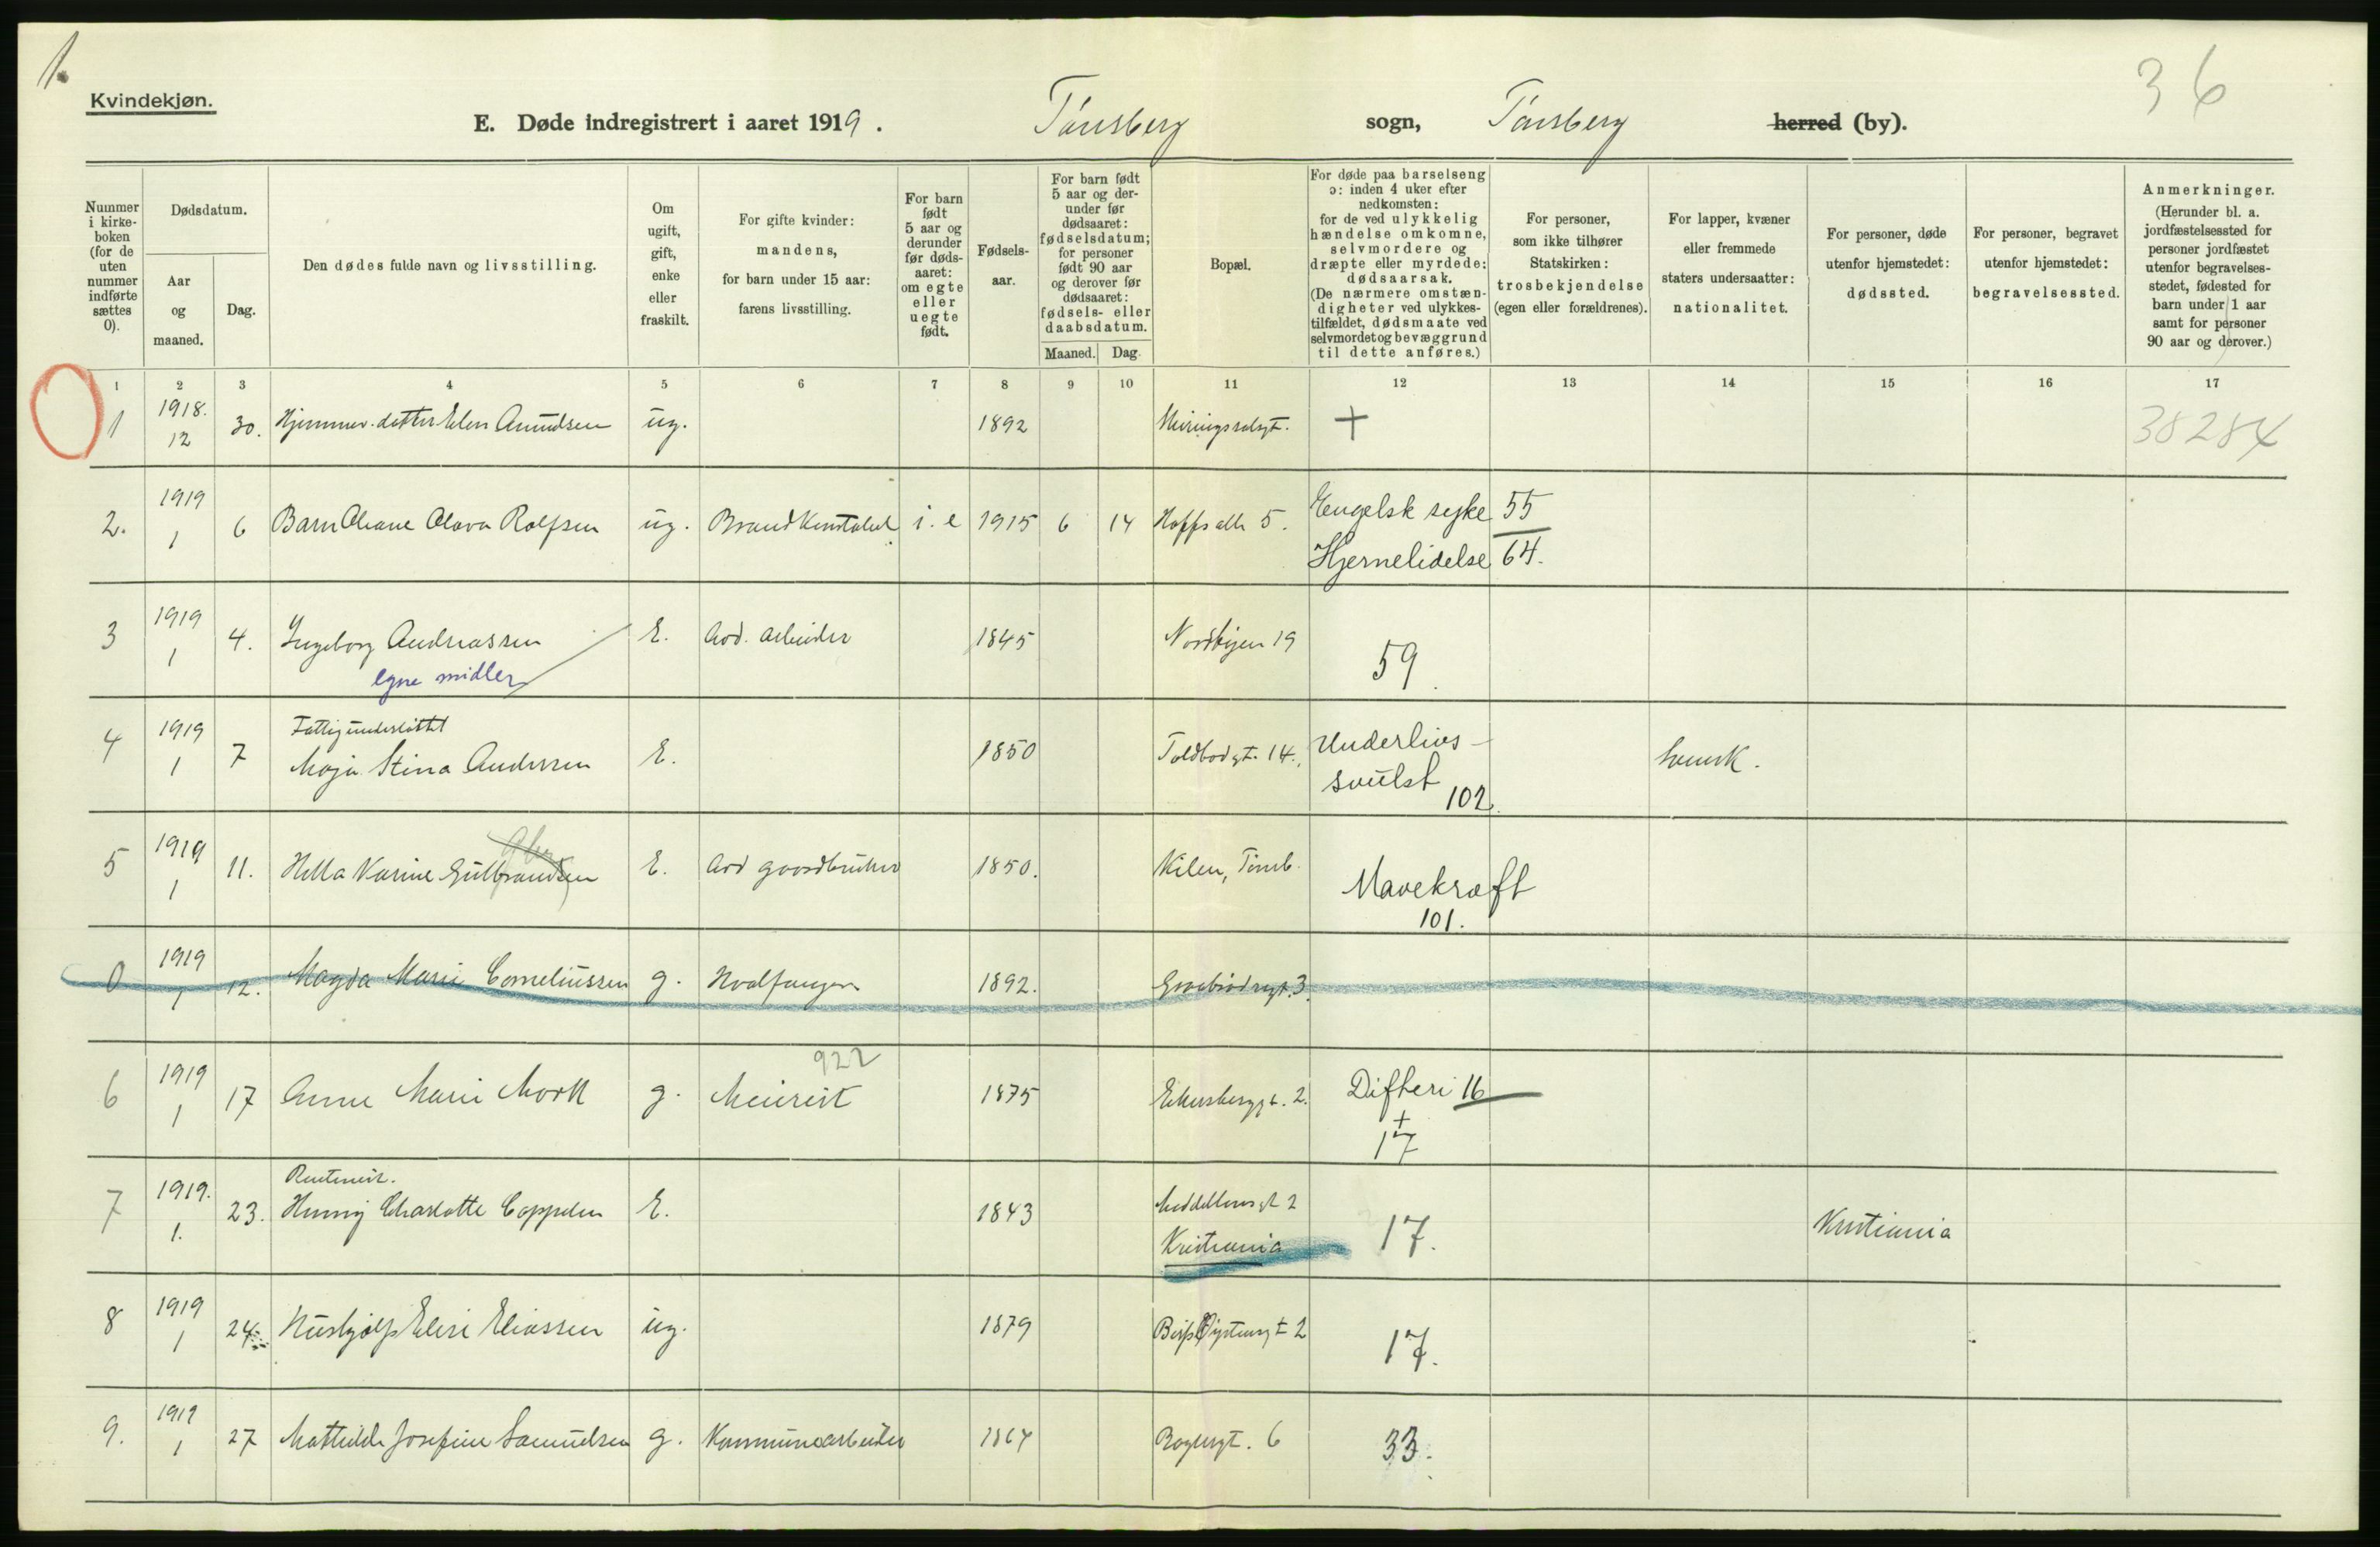 1.
Kvindekjøn.
36
E. Døde indregistrert i aaret 1919. Tønsberg sogn, Tønsberg herred (by).
Nummer i kirkeboken (for de uten nummer indførte sættes 0).
Dødsdatum.
Aar og maaned.
Dag.
Den dødes fulde navn og livsstilling.
Om ugift, gift, enke eller fraskilt.
For gifte kvinder: mandens, for barn under 15 aar: farens livsstilling.
For barn født 5 aar og derunder før dødsaaret: om egte eller uegte født.
Fødselsaar.
For barn født 5 aar og derunder før dødsaaret: fødselsdatum; for personer født 90 aar og derover før dødsaaret: fødsels- eller daabsdatum.
Maaned. Dag.
Bopæl.
For døde paa barselseng ɔ: inden 4 uker efter nedkomsten: for de ved ulykkelig hændelse omkomne, selvmordere og dræpte eller myrdede: dødsaarsak. (De nærmere omstændigheter ved ulykkestilfældet, dødsmaate ved selvmordet og bevæggrund til dette anføres.)
For personer, som ikke tilhører Statskirken: trosbekjendelse (egen eller forældrenes).
For lapper, kvæner eller fremmede staters undersaatter: nationalitet.
For personer, døde utenfor hjemstedet: dødssted.
For personer, begravet utenfor hjemstedet: begravelsessted.
Anmerkninger. (Herunder bl. a. jordfæstelsessted for personer jordfæstet utenfor begravelsesstedet, fødested for barn under 1 aar samt for personer 90 aar og derover.)
1 2 3 4 5 6 7 8 9 10 11 12 13 14 15 16 17
1 1918. 12 30. Hjemmev. datter Elen Amundsen ug. 1892 + 38284
2. 1919 1 6 Barn Olava Rolfsen ug. Brandkonstabel i. e 1915 6 14 Hoffs alle 5. Engelsk syke 55
Hjernelidelse 64.
3 1919 1 4. Ingeborg Andreassen E. Avd. arbeider 1845 Nordbyen 19 59
egne midler
4 1919 1 7 Fattigunderstøttet
Maja Stina Andersen E. 1850 Toldbodgt. 14. Underlivs-
svulst 102 svensk.
5 1919 1 11. Karine Gulbrandsen E. Avd gaardbruker 1850. Kilen, Tønsb. Mavekræft
101.
0 1919 1 12. Magda Marie Corneliussen g. Hvalfanger 1892. 3.
6 1919 1 17 Anne Marie Mork g. Meierist 922 1875 2. Difteri 16
+
17
7 1919. 1. 23. Rentenist.
Charlotte Cappelen E. 1843 Meddelthunsgt 2
Kristiania 17. Kristiania
8 1919 1 24. Hushjælp Elise Eliassen ug. 1879 2 17.
9. 1919 1 27 Mathilde Josefine Samuelsen g. Kommunearbeider 1864 Baglergt. 6 33.